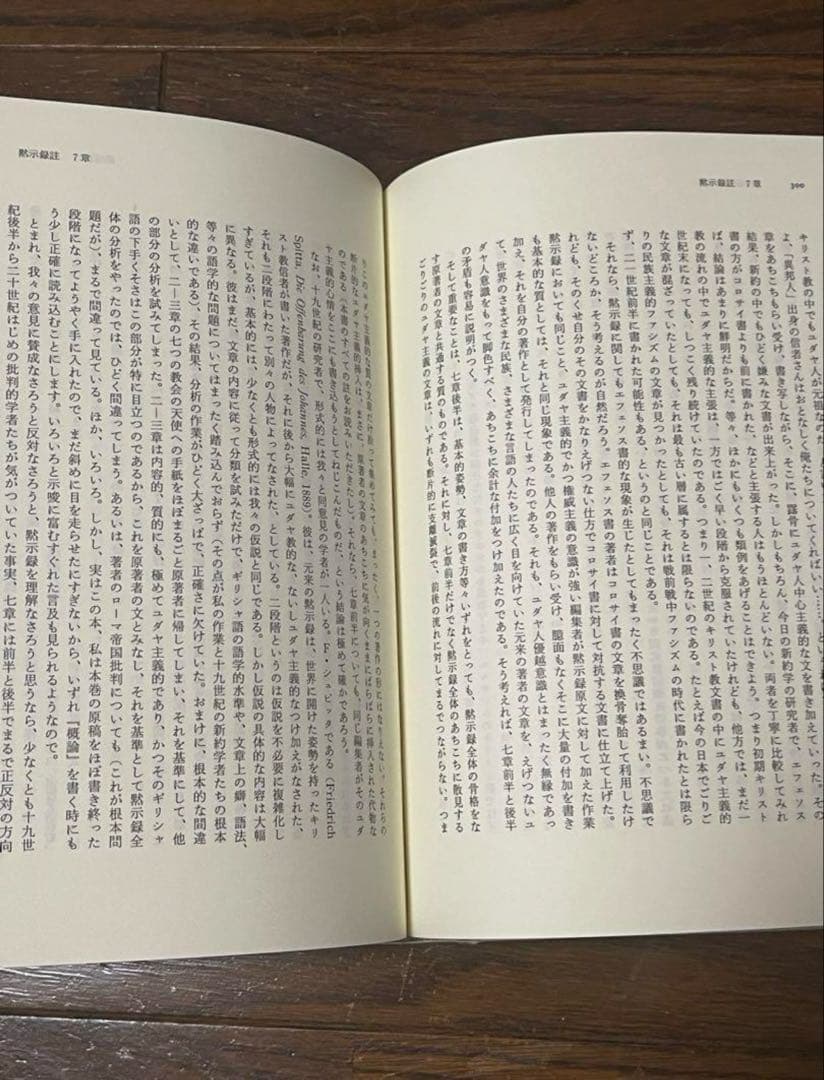 黙示録註　7章　300
キリスト教の中でもユダヤ人が元祖なの
よ、「異邦人」出身の信者さんはおとなしく俺たちについてくればいい……という
章をあちこちもらい受け、書き写しながら、そこに、露骨にユダヤ人中心主義的な文を書き加えていった。その
結果、新約の中でもひどく嫌みな文書が出来上がった。しかしもちろん、今日の新約学の研究者で、エフェソス
書の方がコロサイ書よりも前に書かれた、などと主張する人はもうほとんどいない。両者を丁寧に比較してみれ
ば、結論はあまりに鮮明だからだ。等々、ほかにもいくつも類例をあげることはできよう。つまり初期キリスト
教の流れの中でユダヤ主義的な主張は、一方ではごく早い段階から克服されていたけれども、他方では、まだ一
世紀末になっても、しつこく残り続けていたのである。つまり一、二世紀のキリスト教文書の中にユダヤ主義的
な文章が混ざっていたとしても、それは最も古い層に属するとは限らないのである。たとえば今の日本でごりご
りの民族主義的ファシズムの文章が見つかったとしても、それは戦前戦中ファシズムの時代に書かれたとは限ら
ず、二一世紀前半に書かれた可能性もある、というのと同じことである。
それなら、黙示録に関してもエフェソス書的な現象が生じたとしてもまったく不思議ではあるまい。不思議で
ないどころか、そう考えるのが自然だろう。エフェソス書の著者はコロサイ書の文章を換骨奪胎して利用しただけ
れども、そのくせ自分のその文書をかなりえげつない仕方でコロサイ書に対して対抗する文書に仕立て上げた。
黙示録においても同じこと、ユダヤ主義的でかつ権威主義の意識が強い編集者が黙示録原文に対して加えた作業
も基本的な質としては、それと同じ現象である。他人の著作をもらい受け、臆面もなくそこに大量の付加を書き
加え、それを自分の著作として発行してしまったのである。それも、ユダヤ人優越意識とはまったく無縁であっ
て、世界のさまざまな民族、さまざまな言語の人たちに広く目を向けていた元来の著者の文章を、えげつないユ
ダヤ人意識をもって脚色すべく、あちこちに余計な付加をつけ加えたのである。そう考えれば、七章前半と後半
の矛盾も容易に説明がつく。
そして重要なことは、七章後半は、基本的姿勢、文章の書き方等々いずれをとっても、黙示録全体の骨格をな
す原著者の文章と共通する質のものである。それに対し、七章前半だけでなく黙示録全体のあちこちに散見する
ごりごりのユダヤ主義の文章は、いずれも断片的に支離滅裂で、前後の流れに対してまるでつながらない。つま
黙示録註　7章
りこのユダヤ主義的な質の文章だけ拾って集めてみても、まったく一つの著作の形にはなりえない。それらの
断片的なユダヤ主義的挿入は、まさに、原著者の文章のあちこちに気が向くままにばらばらに挿入された代物な
のである（本書のすべての註をお読みいただきたい）。それなら、七章前半についても、同じ編集者がそのユダ
ヤ主義的心情をここにも書き込もうとしてねじこんだものだ、という結論は極めて確かであろう。
なお、十九世紀の研究者で、形式的には我々と同意見の学者が一人いる。F・シュピッタである（Friedrich
Spitta, Die Offenbarung des Johannes, Halle, 1889）。彼は、元来の黙示録は、世界に開けた姿勢を持ったキリ
スト教信者が書いた著作だが、それに後から大幅にユダヤ教的な、ないしユダヤ主義的なつけ加えがなされた、
それも二段階にわたって別々の人物によってなされた、としている。二段階というのは仮説を不必要に複雑化し
すぎているが、基本的には、少なくとも形式的には我々の仮説と同じである。しかし仮説の具体的な内容は大幅
に異なる。彼はまだ、文章の内容に従って分類を試みただけで、ギリシャ語の語学的水準や、文章上の癖、語法、
等々の語学的な問題についてはまったく踏み込んでおらず（その点が私の作業と十九世紀の新約学者たちの根本
的な違いである）、その結果、分析の作業がひどく大ざっぱで、正確さに欠けていた。おまけに、根本的な間違
いとして、二―三章の七つの教会の天使への手紙をほぼまるごと原著者に帰してしまい、それを基準にして、他
の部分の分析を試みてしまった。二―三章は内容的、質的にも、極めてユダヤ主義的であり、かつそのギリシャ
語の下手くそさはこの部分が特に目立つのであるから、これを原著者の文とみなし、それを基準として黙示録全
体の分析をやったのでは、ひどく間違ってしまう。あるいは、著者のローマ帝国批判についても（これが根本問
題だが）、まるで間違って見ている。ほか、いろいろ。しかし、実はこの本、私は本巻の原稿をほぼ書き終った
段階になってようやく手に入れたので、まだ斜めに目を走らせたにすぎないから、いずれ『概論』を書く時にも
う少し正確に読み込むことにします。いろいろと示唆に富むすぐれた言及も見られるようなので。
とまれ、我々の意見に賛成なさろうと反対なさろうと、黙示録を理解なさろうと思うなら、少なくとも十九世
紀後半から二十世紀はじめの批判的学者たちが気がついていた事実、七章には前半と後半でまるで正反対の方向